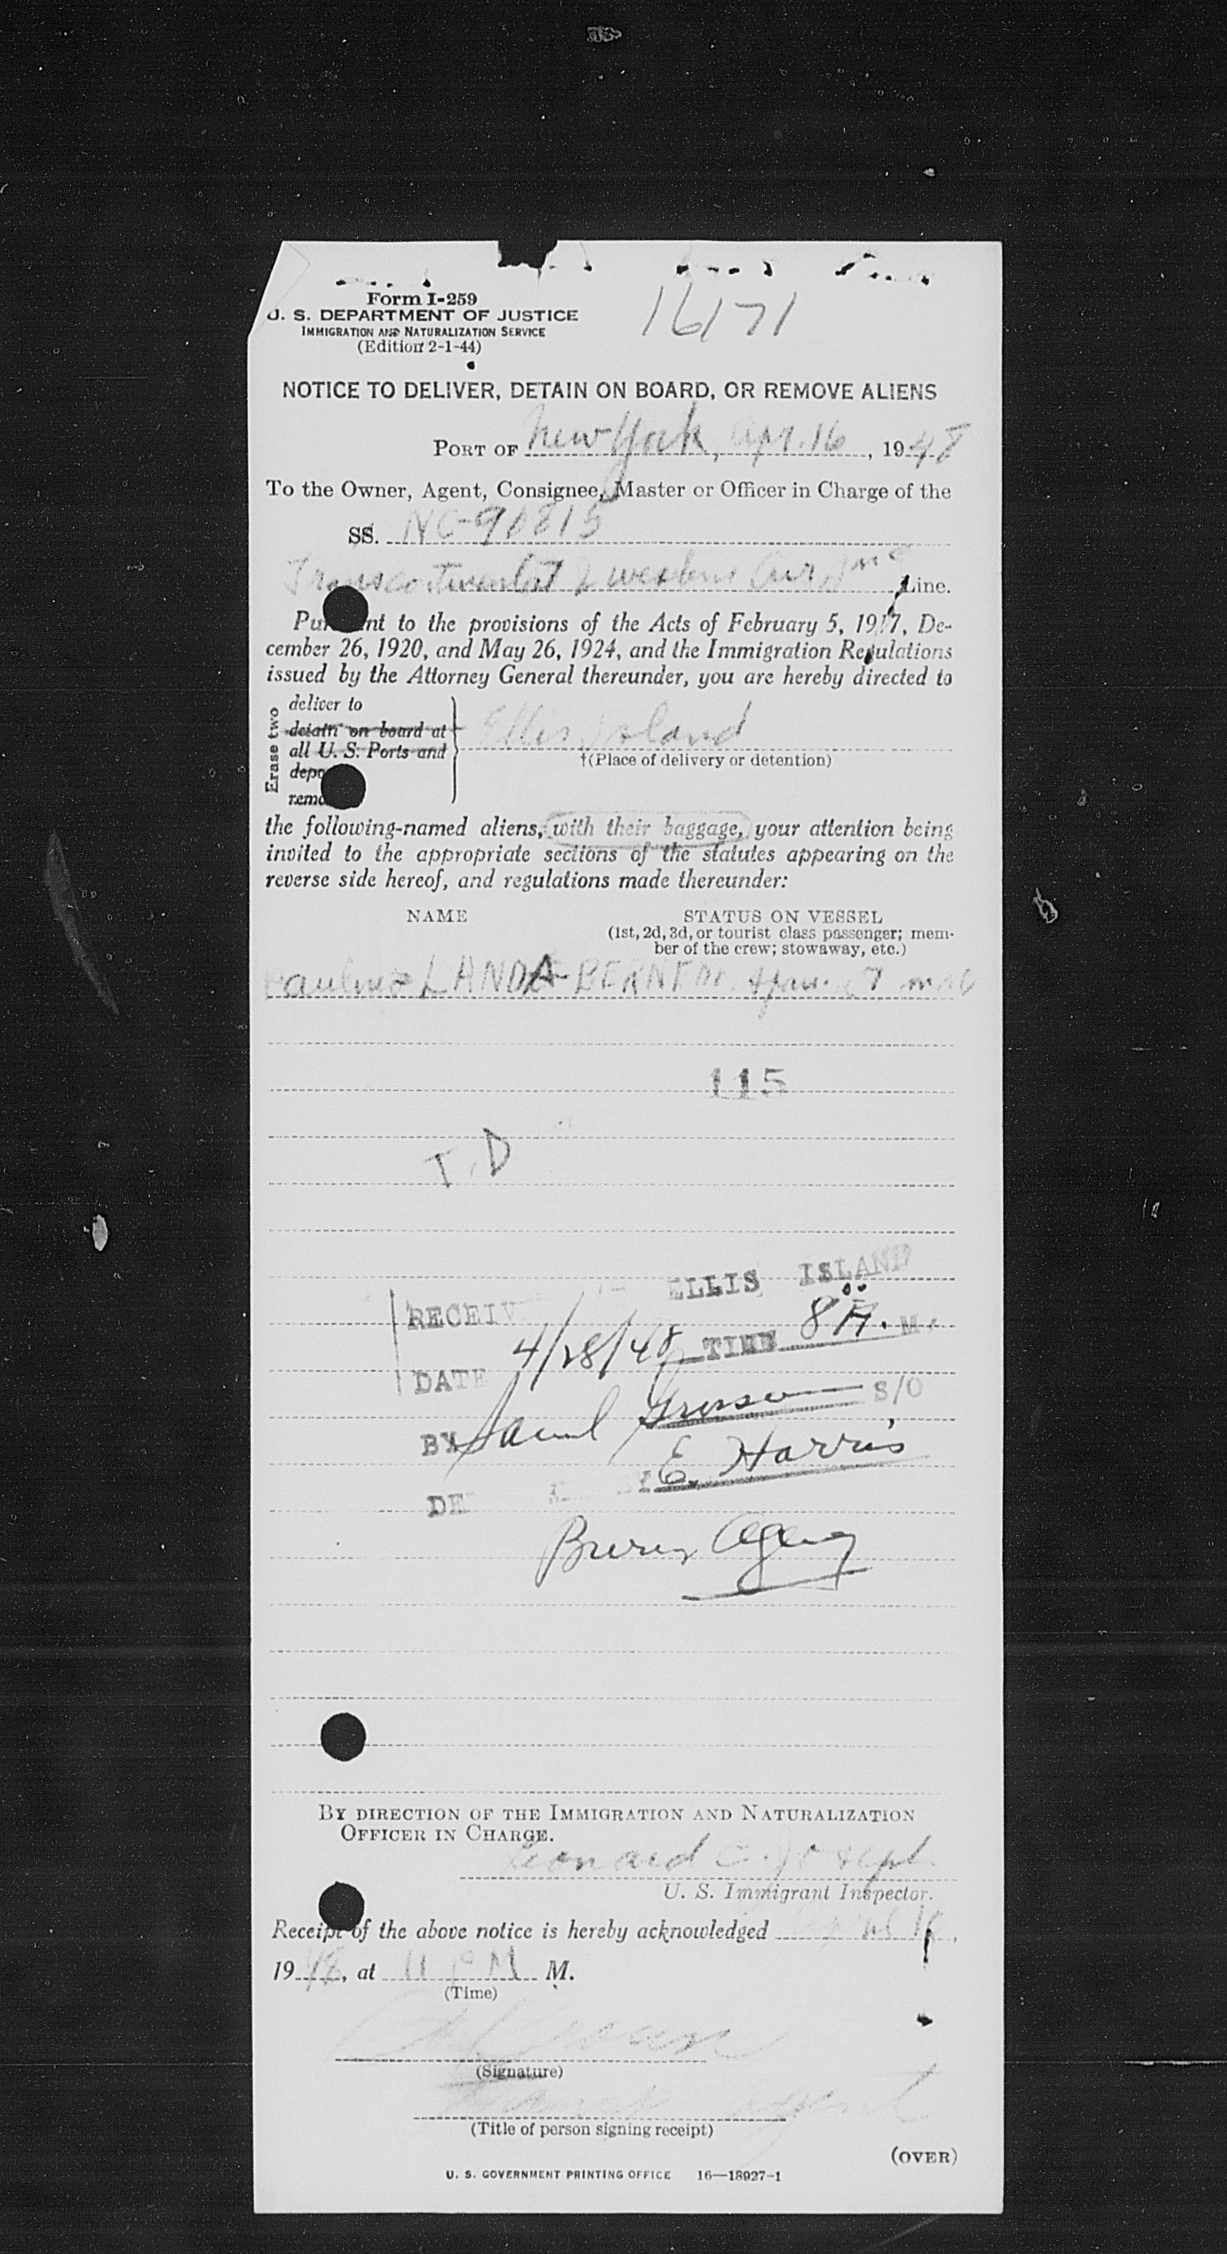 Form I-259
U. S. DEPARTMENT OF JUSTICE
IMMIGRATION AND NATURALIZATION SERVICE
(Edition 2-1-44)
16171
NOTICE TO DELIVER, DETAIN ON BOARD, OR REMOVE ALIENS
PORT OF New York, Apr. 16, 1948
To the Owner, Agent, Consignee, Master or Officer in Charge of the
SS. NC-90815
Transcontinental & Western Air, Inc Line.
Pursuant to the provisions of the Acts of February 5, 1917, De-
cember 26, 1920, and May 26, 1924, and the Immigration Regulations
issued by the Attorney General thereunder, you are hereby directed to
Erase two
deliver to
detain on board at
all U. S. Ports and
Ellis Island
†(Place of delivery or detention)
the following-named aliens, with their baggage, your attention being
invited to the appropriate sections of the statutes appearing on the
reverse side hereof, and regulations made thereunder:
NAME STATUS ON VESSEL
(1st, 2d, 3d, or tourist class passenger; mem-
ber of the crew; stowaway, etc.)
LANDA-BERNE
115
T.D
RECEIV ELLIS ISLAND
DATE 4/28/48 TIME 8 00 A. M.
BY S/O
E. Harris
DE
Agency
BY DIRECTION OF THE IMMIGRATION AND NATURALIZATION
OFFICER IN CHARGE.
Leonard C. Joseph
U. S. Immigrant Inspector.
Receipt of the above notice is hereby acknowledged April 16,
1948, at 11 PM M.
(Time)
(Signature)
Agent
(Title of person signing receipt)
(OVER)
U. S. GOVERNMENT PRINTING OFFICE 16—18927-1